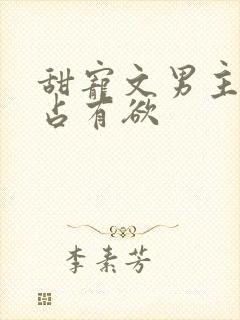 甜寵文男主
占有欲
李素芳